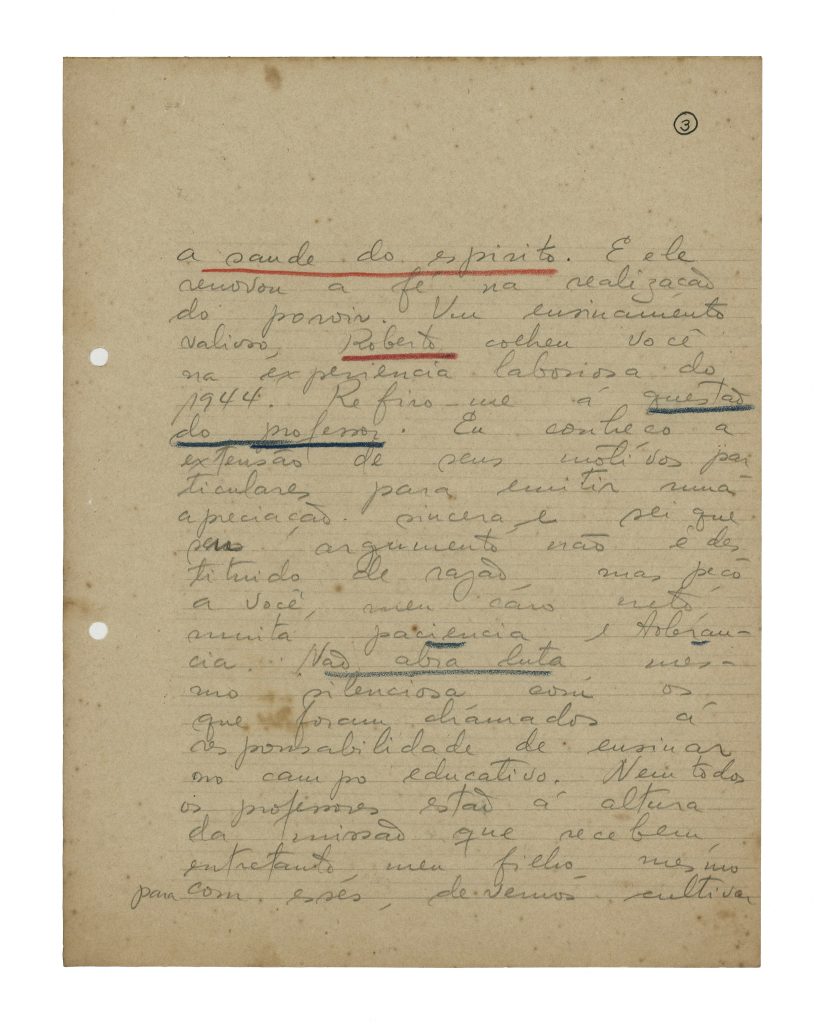 3
a saude do espirito. E ele
renovou a fé na realização
do porvir. Um ensinamento
valioso, Roberto, colheu você
na experiencia laboriosa do
1944. Refiro-me á questão
do professor. Eu conheço a
extensão de seus motivos par
ticulares para emitir numa
apreciação sincera e sei que
seu argumento não é des
tituido de razão, mas peço
a você, meu caro neto,
muita paciencia e toleran-
cia. Não abra luta mes-
mo silenciosa com os
que foram chamados á
responsabilidade de ensinar
no campo educativo. Nem todos
os professores estão á altura
da missão que recebem
entretanto meu filho mesmo
para com esses, devemos cultivar